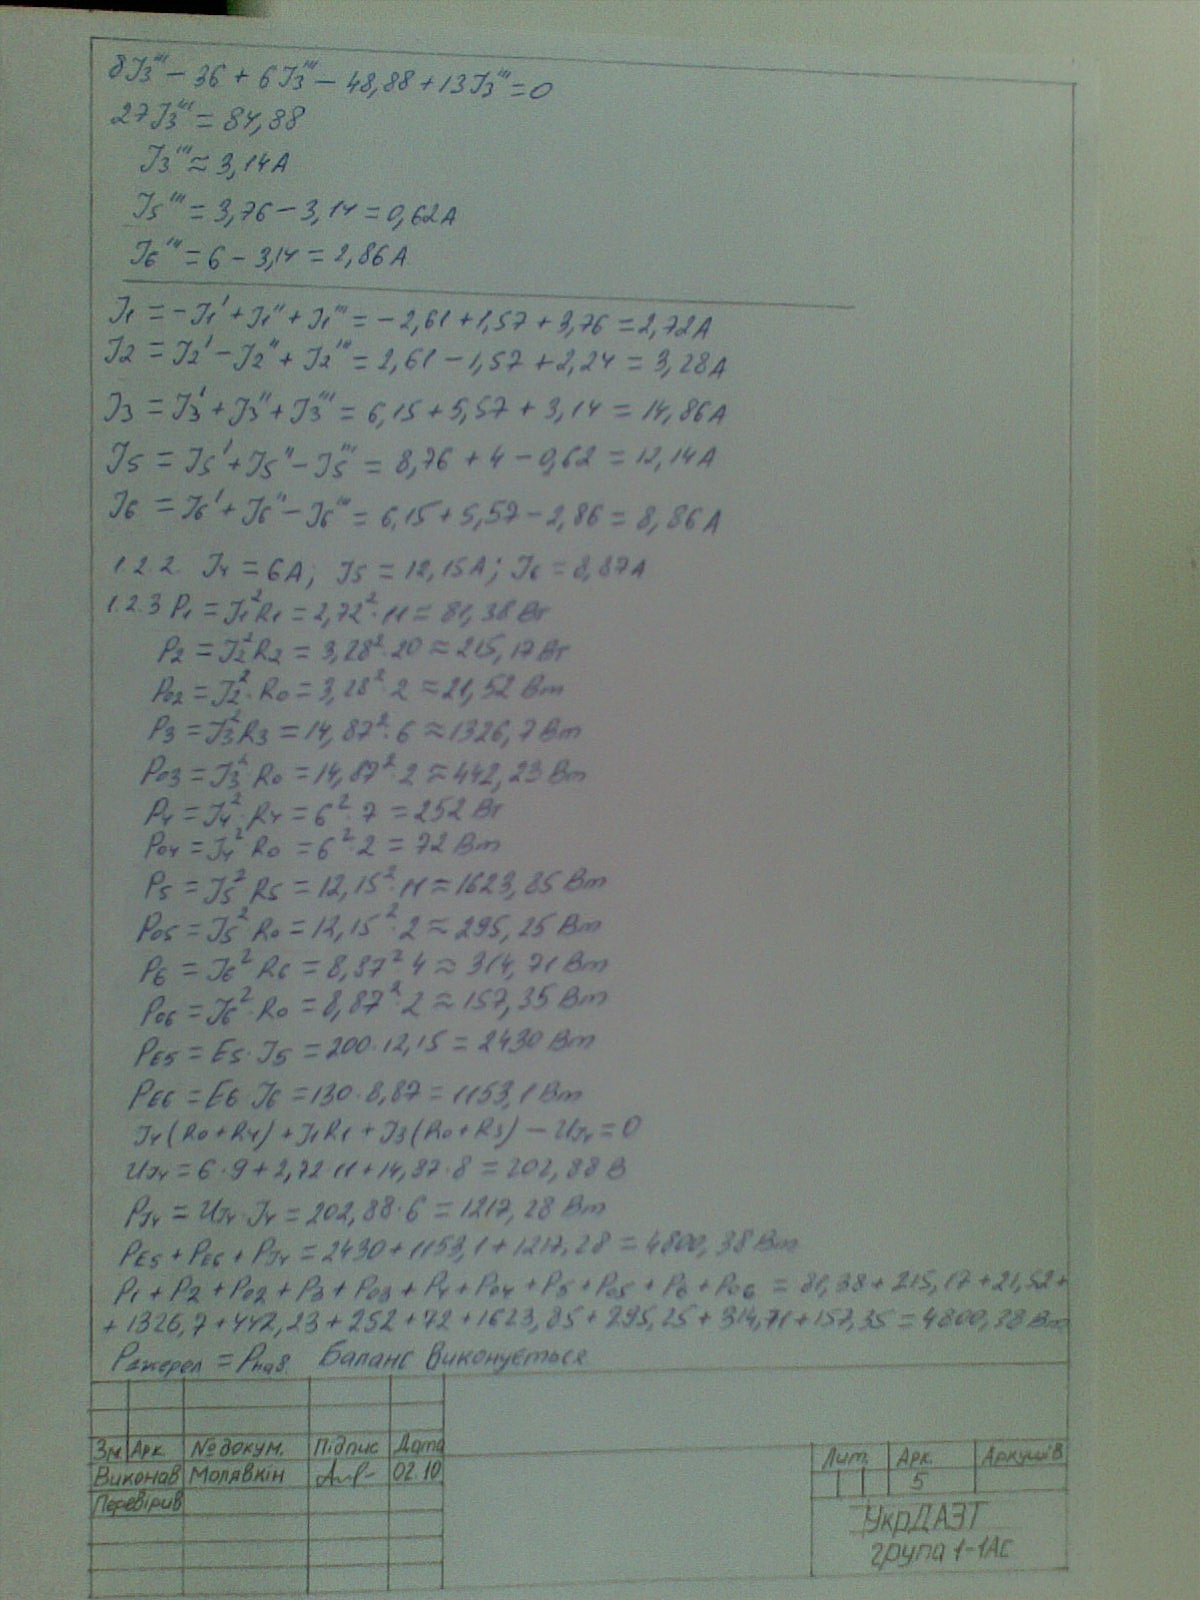 8I3''' − 36 + 6I3''' − 48,88 + 13I3''' = 0
27I3''' = 84,88
I3''' ≈ 3,14A
I5''' = 3,76 − 3,14 = 0,62A
I6''' = 6 − 3,14 = 2,86A
I1 = −I1' + I1'' + I1''' = −2,61 + 1,57 + 3,76 = 2,72A
I2 = I2' − I2'' + I2''' = 2,61 − 1,57 + 2,24 = 3,28A
I3 = I3' + I3'' + I3''' = 6,15 + 5,57 + 3,14 = 14,86A
I5 = I5' + I5'' − I5''' = 8,76 + 4 − 0,62 = 12,14A
I6 = I6' + I6'' − I6''' = 6,15 + 5,57 − 2,86 = 8,86A
1.2.2. I4 = 6A; I5 = 12,15A; I6 = 8,87A
1.2.3 P1 = I1²R1 = 2,72²·11 = 81,38 Вт
P2 = I2²R2 = 3,28²·20 ≈ 215,17 Вт
P02 = I2²·R0 = 3,28²·2 ≈ 21,52 Вт
P3 = I3²R3 = 14,87²·6 ≈ 1326,7 Вт
P03 = I3²·R0 = 14,87²·2 ≈ 442,23 Вт
P4 = I4²·R4 = 6²·7 = 252 Вт
P04 = I4²·R0 = 6²·2 = 72 Вт
P5 = I5²R5 = 12,15²·11 ≈ 1623,85 Вт
P05 = I5²R0 = 12,15²·2 ≈ 295,25 Вт
P6 = I6²R6 = 8,87²·4 ≈ 314,71 Вт
P06 = I6²·R0 = 8,87²·2 ≈ 157,35 Вт
PE5 = E5·I5 = 200·12,15 = 2430 Вт
PE6 = E6·I6 = 130·8,87 = 1153,1 Вт
I4(R0+R4) + I1R1 + I3(R0+R3) − UJ4 = 0
UJ4 = 6·9 + 2,72·11 + 14,87·8 = 202,88 В
PJ4 = UJ4·J4 = 202,88·6 = 1217,28 Вт
PE5 + PE6 + PJ4 = 2430 + 1153,1 + 1217,28 = 4800,38 Вт
P1 + P2 + P02 + P3 + P03 + P4 + P04 + P5 + P05 + P6 + P06 = 81,38 + 215,17 + 21,52 +
+ 1326,7 + 442,23 + 252 + 72 + 1623,85 + 295,25 + 314,71 + 157,35 = 4800,38 Вт
Pджерел = Pнав. Баланс виконується
Зм Арк. № докум. Підпис Дата Лит. Арк. Аркушів
Виконав Молявкін 02.10 5
Перевірив
УкрДАЗТ
група 1-1АС